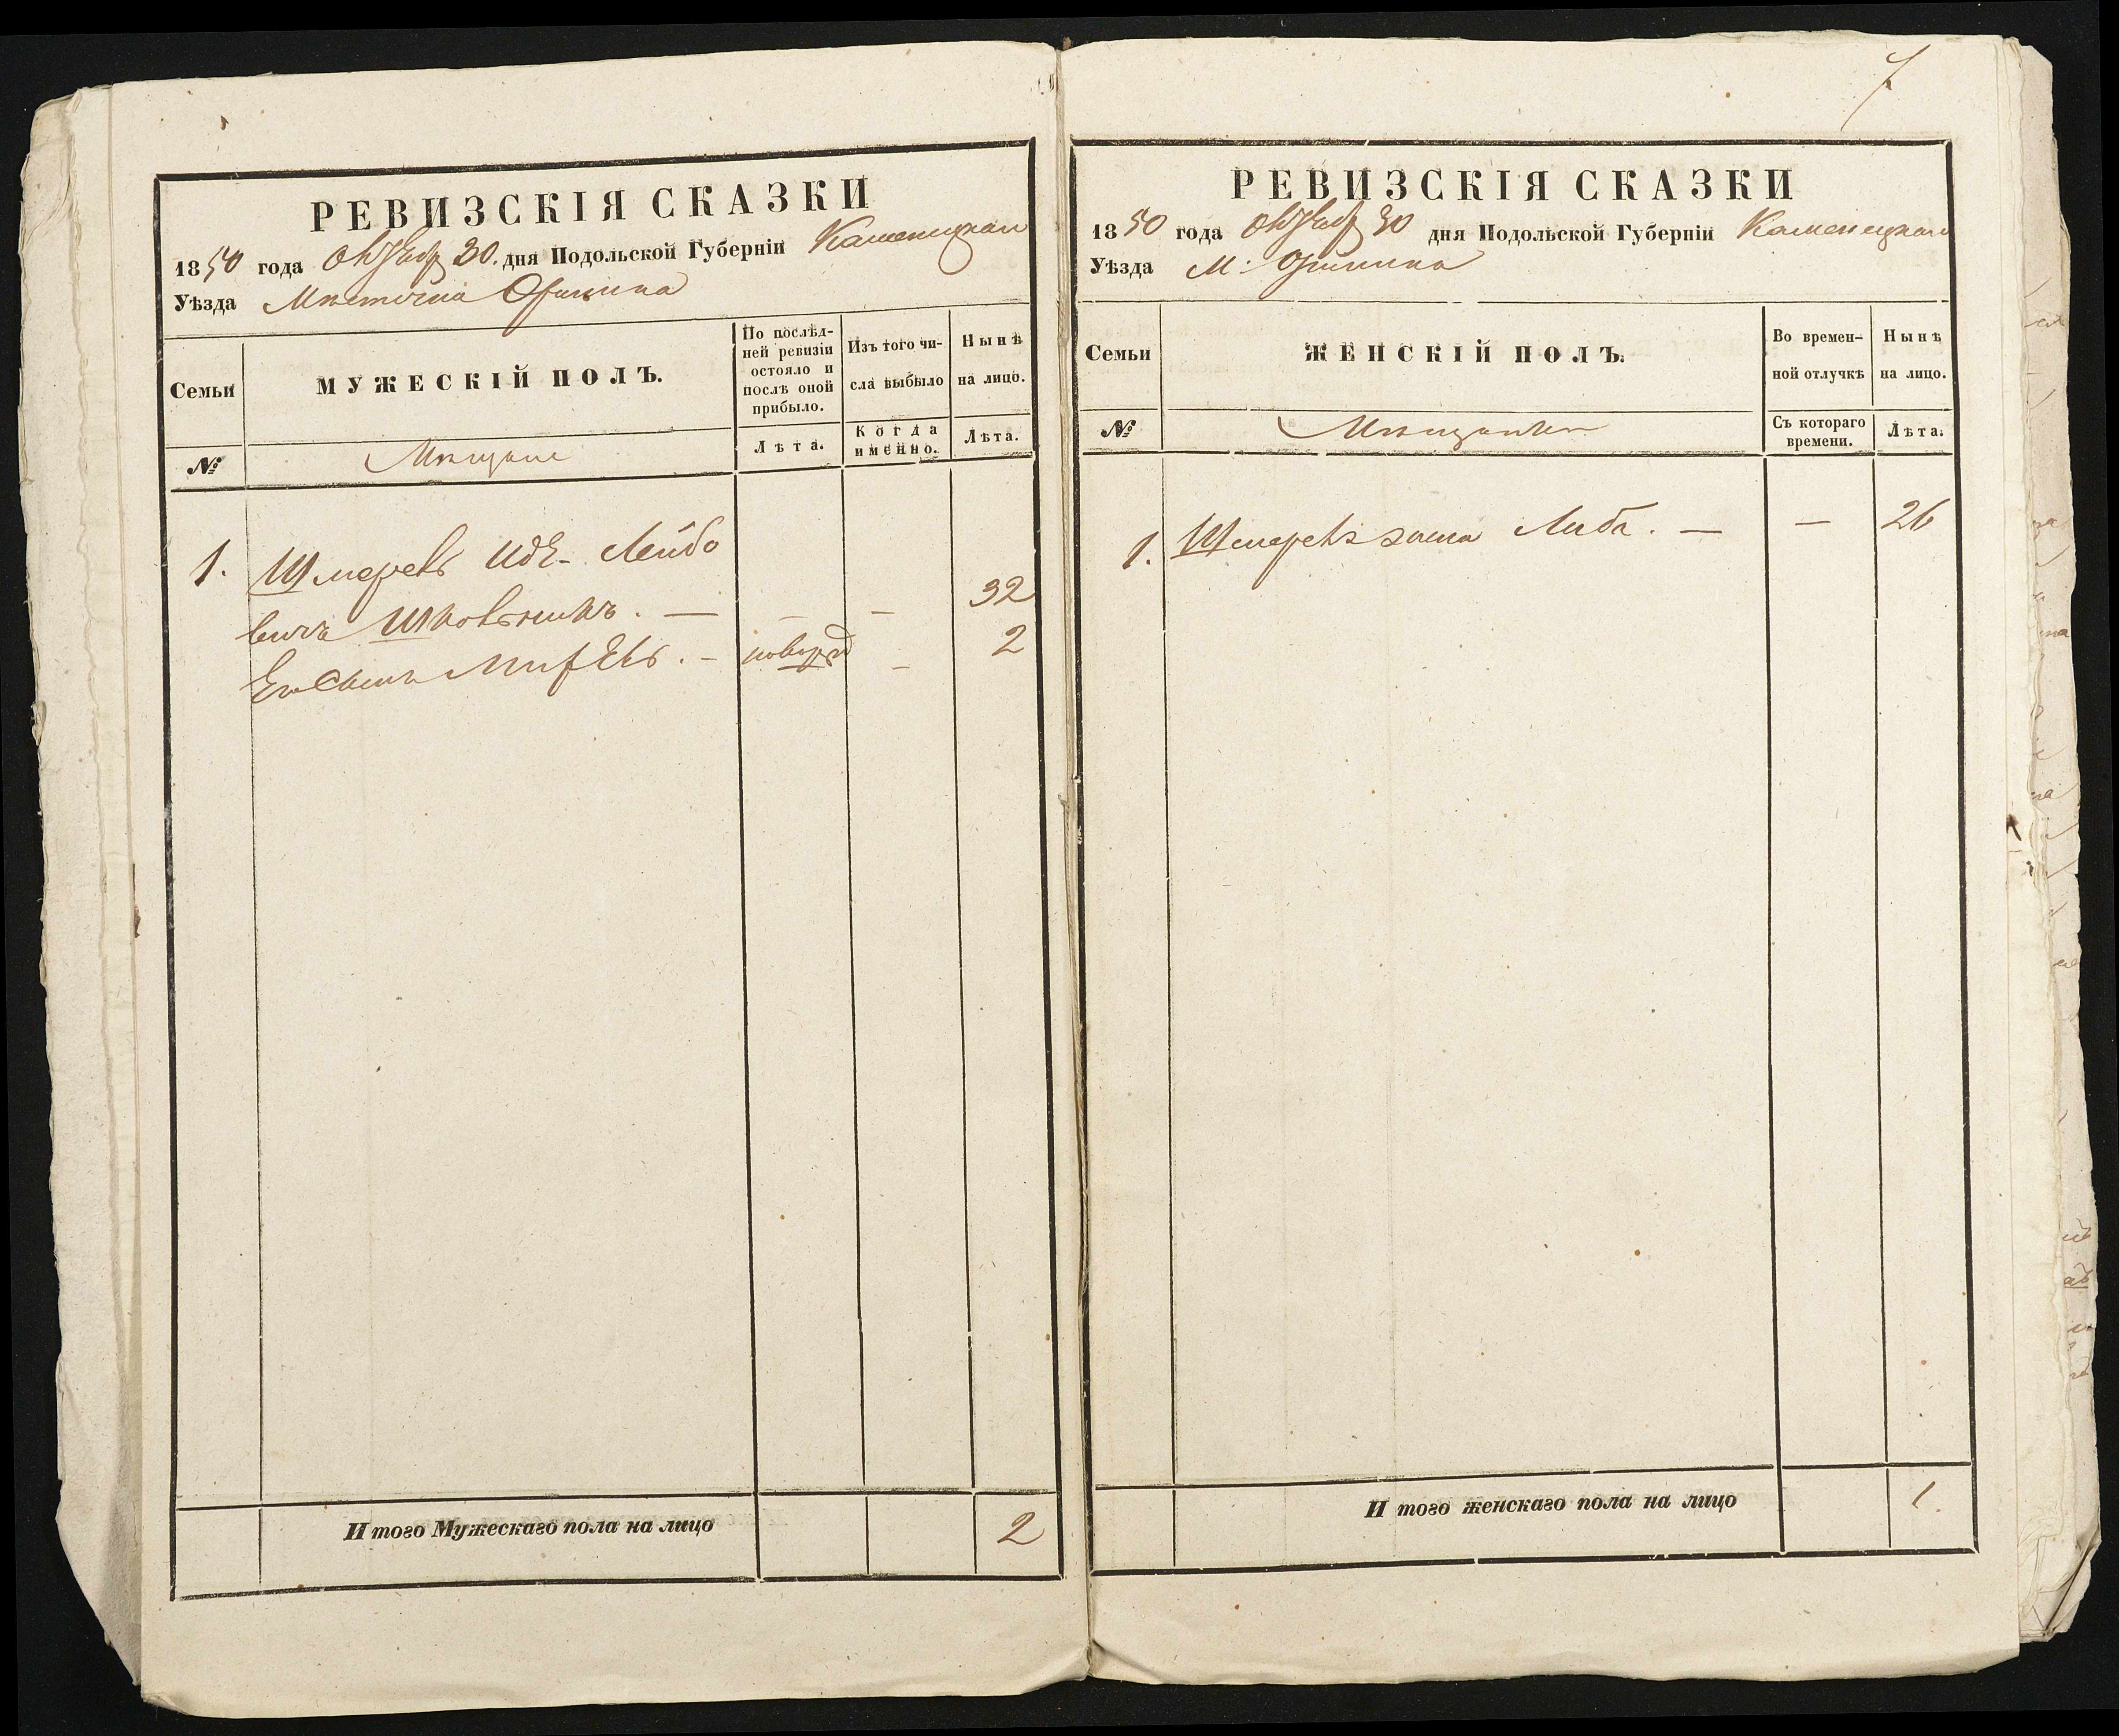 7
РЕВИЗСКІЯ СКАЗКИ
1850 года Октября 30. дня Подольской Губерніи Каменецкаго
Уѣзда Мѣстечка Оринина
Семьи
МУЖЕСКІЙ ПОЛЪ.
По послѣд-
ней ревизіи
состояло и
послѣ оной
прибыло.
Изъ того чи-
сла выбыло
Нынѣ
на лицо.
№
Мещане
Лѣта.
Когда
именно.
Лѣта.
1. Шмерекъ Лейбо
вичъ 32
Его Сынъ новорожд 2
Итого Мужескаго пола на лицо 2
РЕВИЗСКІЯ СКАЗКИ
1850 года Октября 30 дня Подольской Губерніи Каменецкаго
Уѣзда М: Оринина
Семьи
ЖЕНСКІЙ ПОЛЪ.
Во времен-
ной отлучкѣ
Нынѣ
на лицо.
№
Мещанки
Съ котораго
времени.
Лѣта.
1. Шмерека жена Либа. — — 26
Итого женскаго пола на лицо 1.